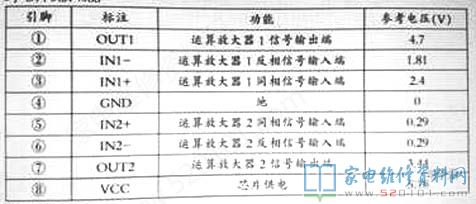 引脚 标注 功能 参考电压(V)
① OUT1 运算放大器1信号输出端 4.7
② IN1- 运算放大器1反相信号输入端 1.81
③ IN1+ 运算放大器1同相信号输入端 2.4
④ GND 地 0
⑤ IN2+ 运算放大器2同相信号输入端 0.29
⑥ IN2- 运算放大器2反相信号输入端 0.29
⑦ OUT2 运算放大器2信号输出端
⑧ VCC 芯片供电
家电维修资料网
www.520101.com